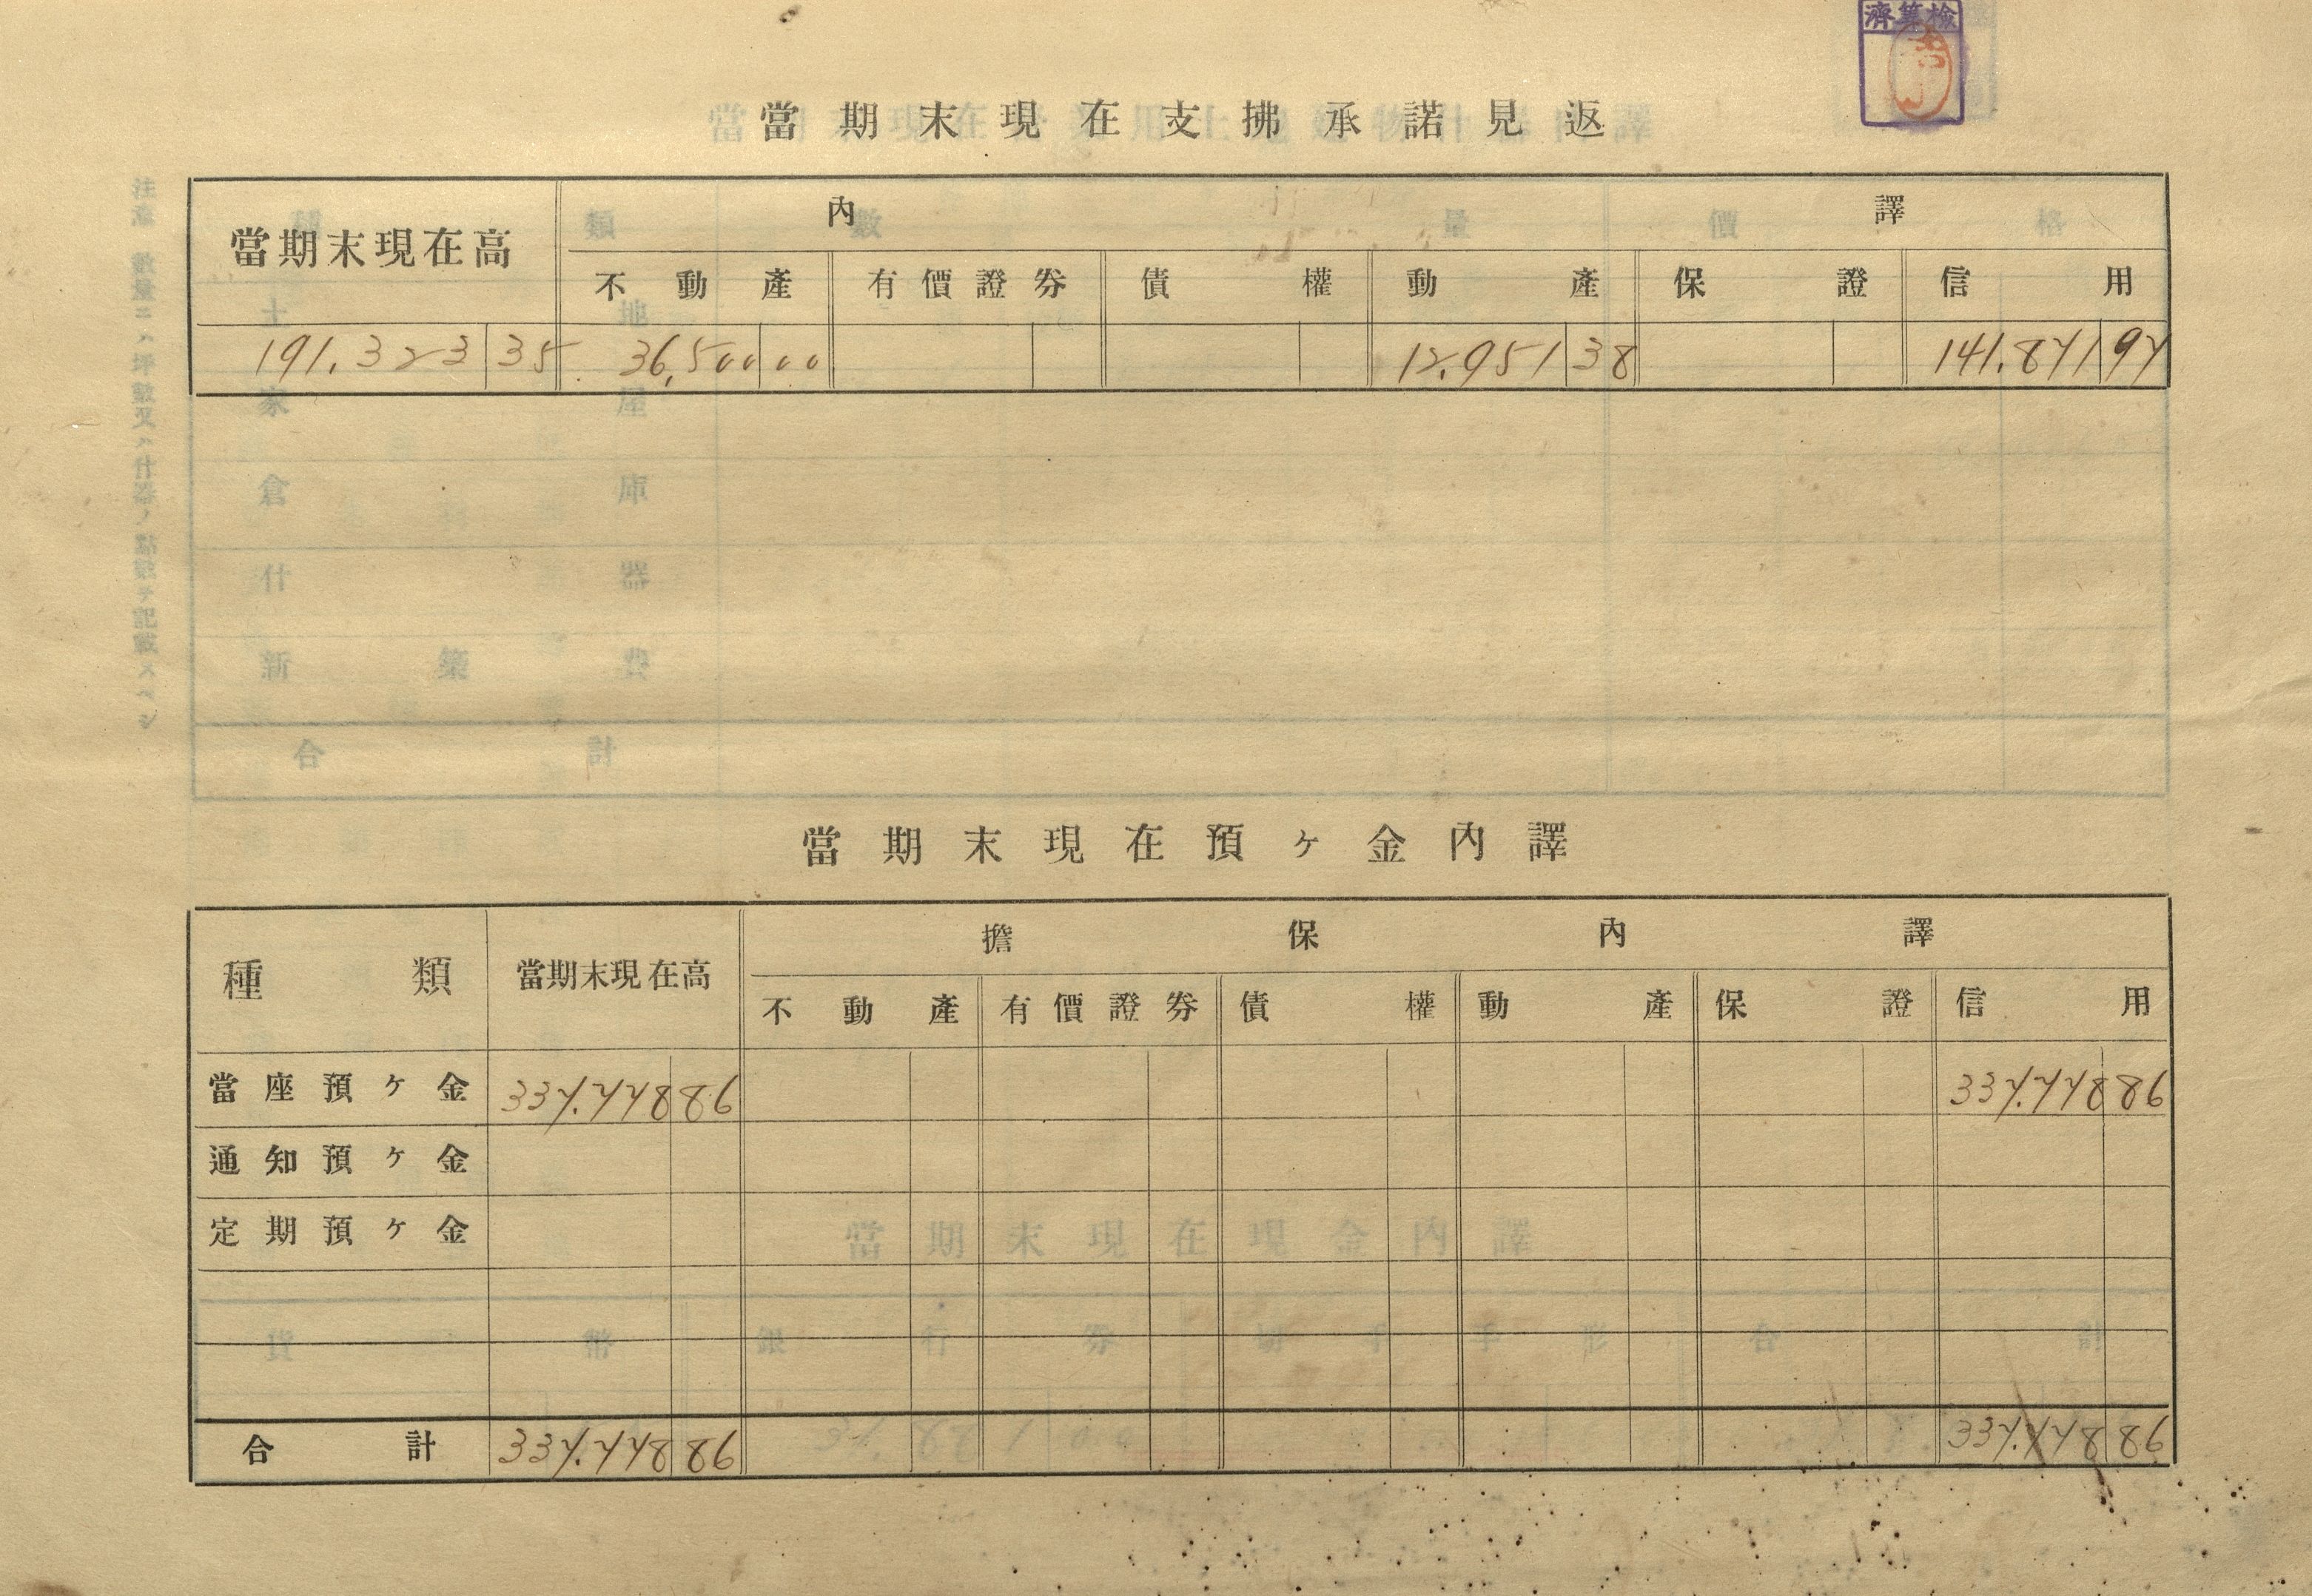 濟算檢
當期末現在支拂承諾見返
當期末現在高 內 譯
不動產 有價證券 債權 動產 保證 信用
191.323 35 36,500 00 12.951 38 141.871 97
當期末現在預ヶ金內譯
種類 當期末現在高 擔保內譯
不動產 有價證券 債權 動產 保證 信用
當座預ヶ金 337.778 86 337.778 86
通知預ヶ金
定期預ヶ金
合計 337.778 86 337.778 86